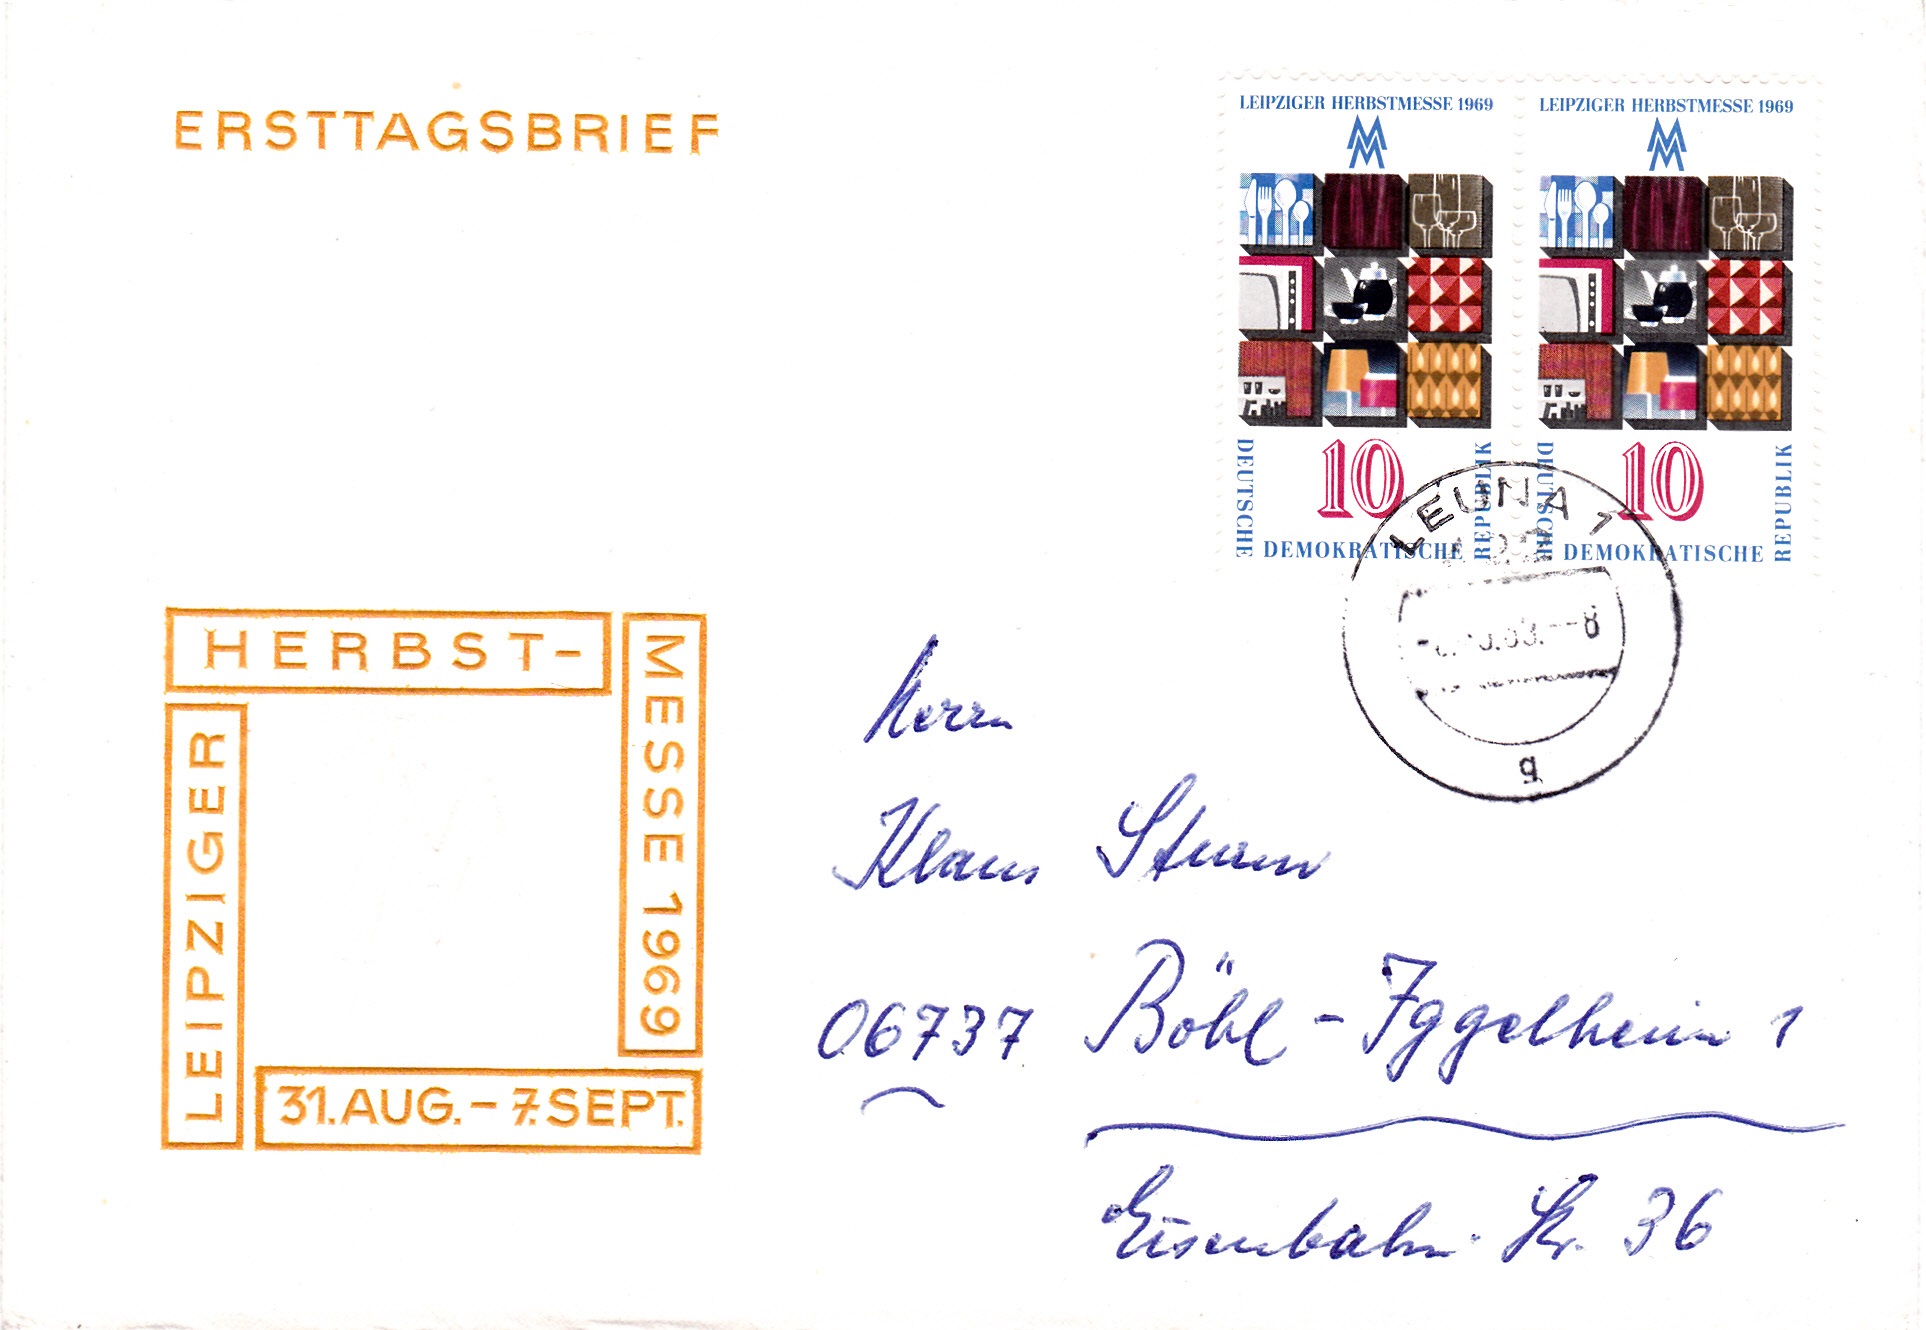 ERSTTAGSBRIEF
LEIPZIGER HERBSTMESSE 1969
MM
10
DEUTSCHE
DEMOKRATISCHE
REPUBLIK
LEIPZIGER HERBSTMESSE 1969
MM
10
DEUTSCHE
DEMOKRATISCHE
REPUBLIK
LEUNA 1
-8
g
LEIPZIGER
HERBST-
MESSE 1969
31. AUG. – 7. SEPT.
Herrn
Klaus Sturm
06737 Böhl-Iggelheim 1
Eisenbahn-Str. 36